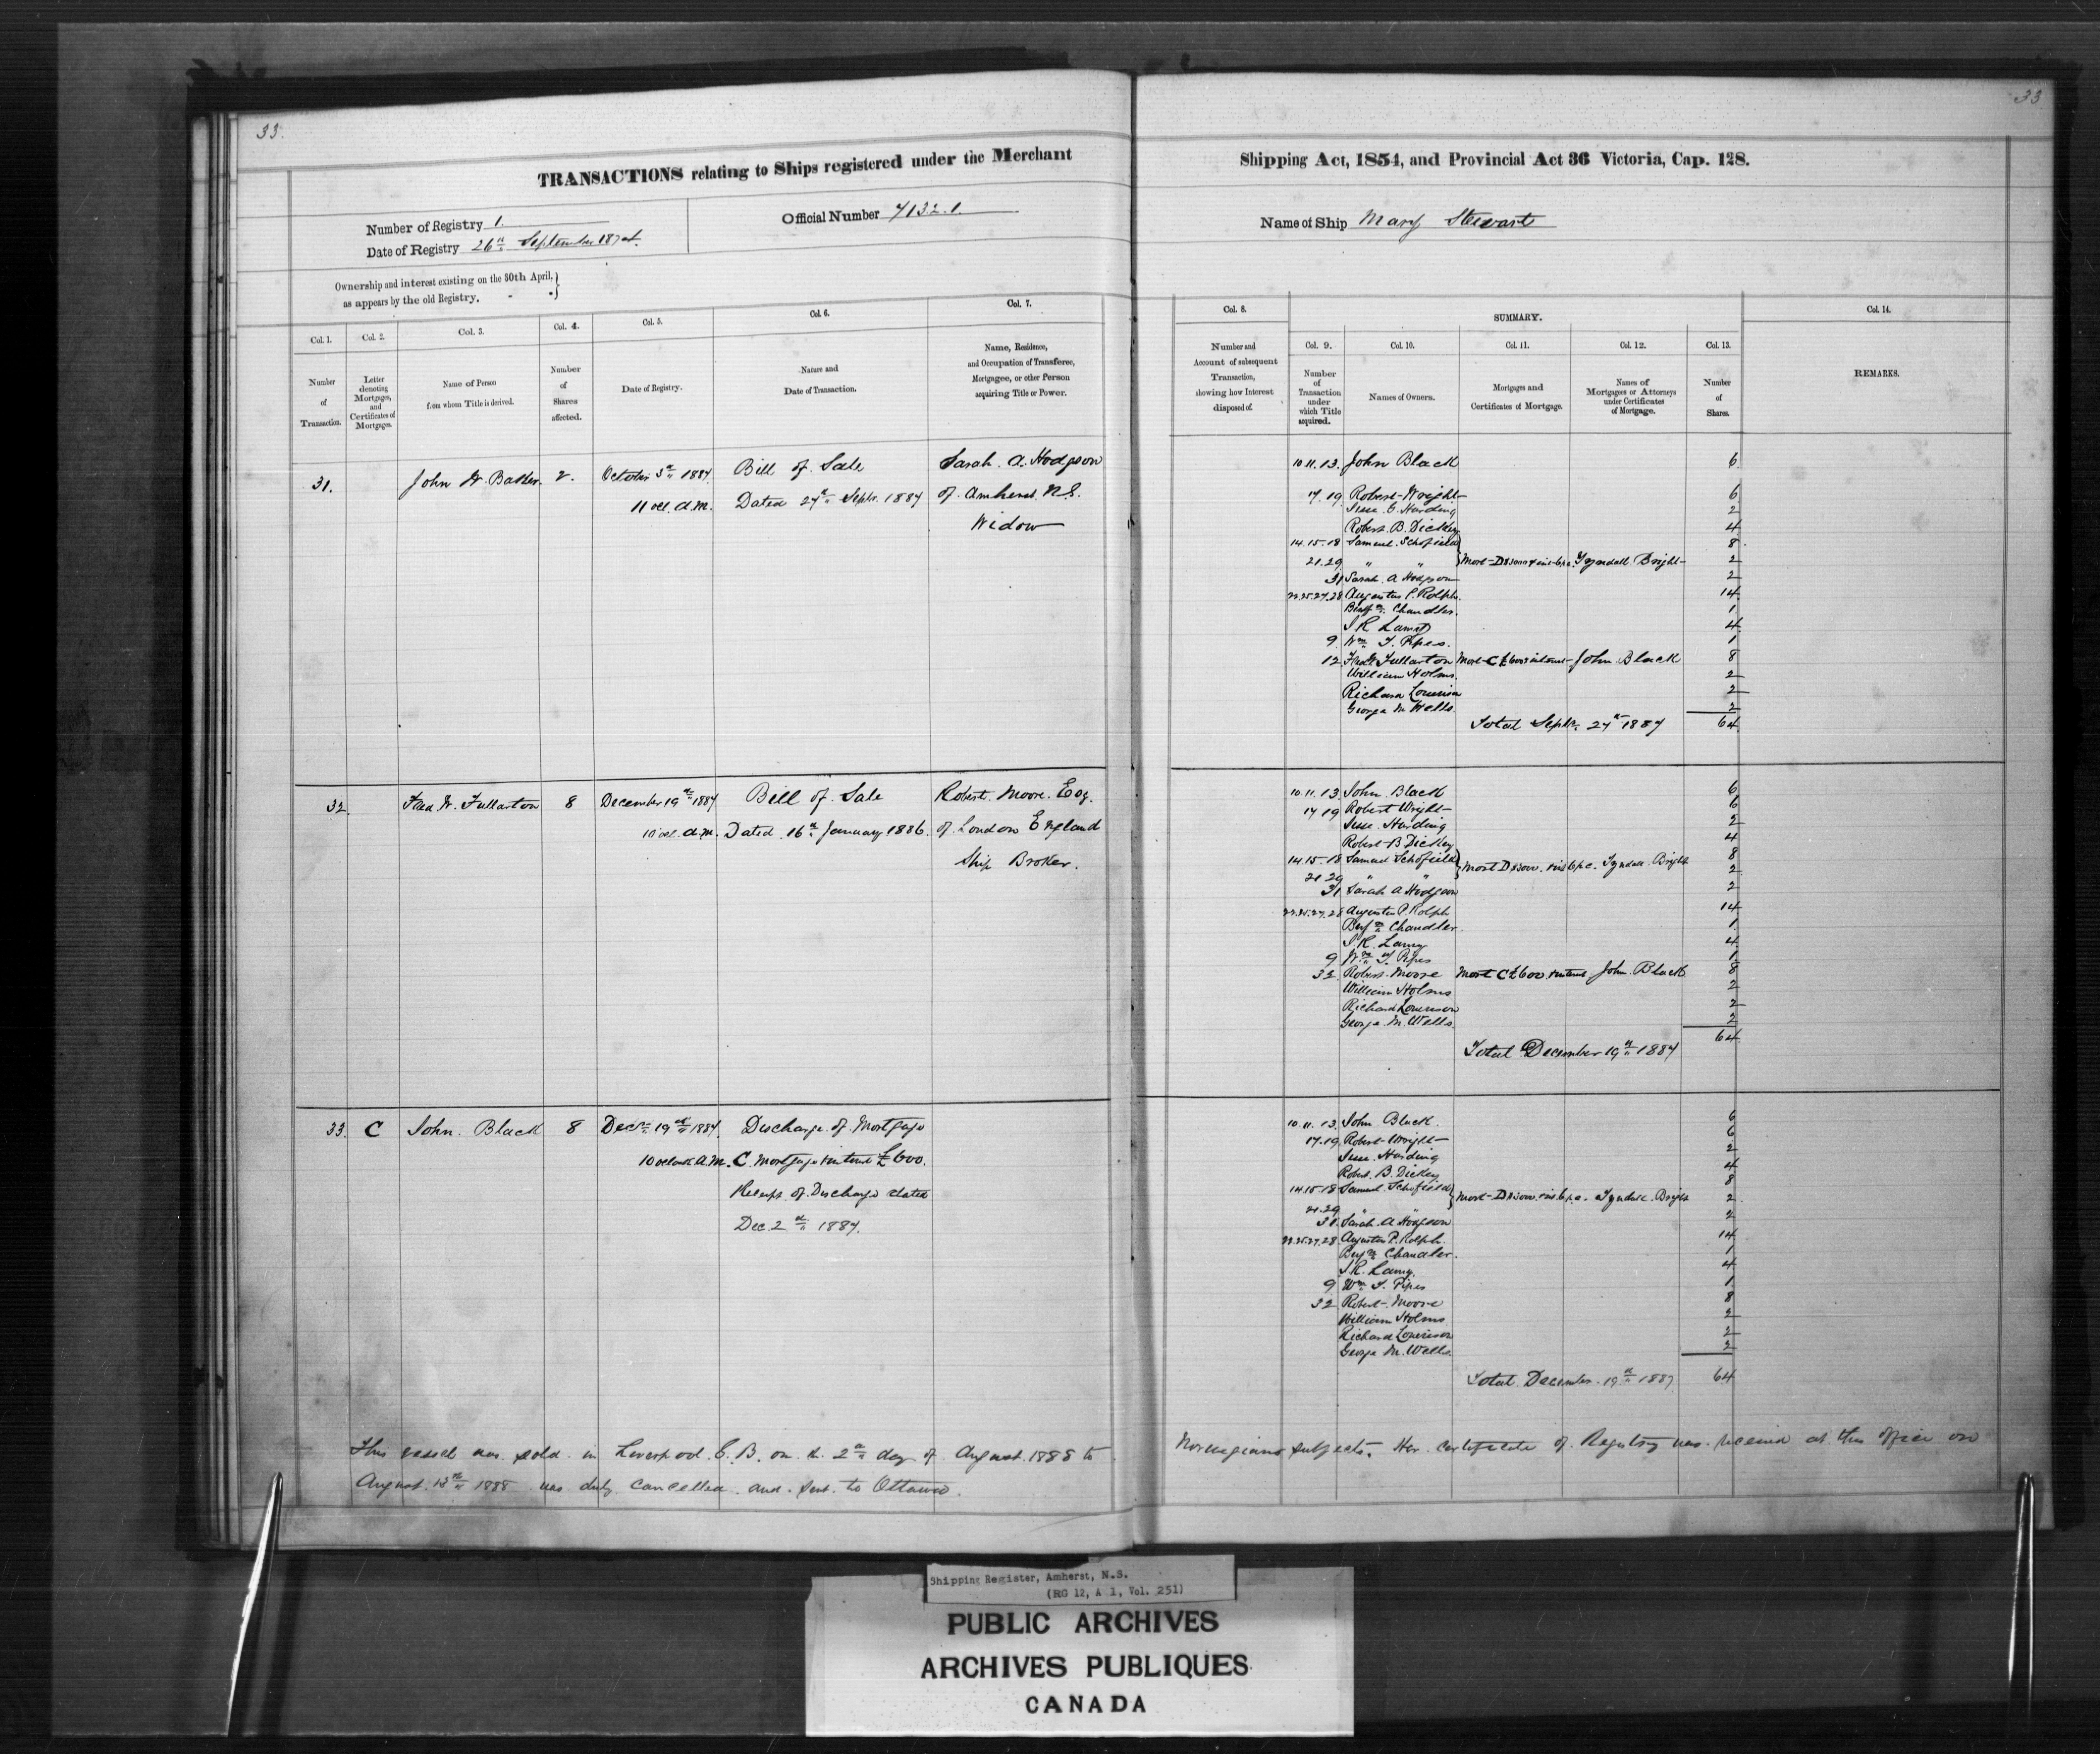 33.
33
TRANSACTIONS relating to Ships registered under the Merchant
Shipping Act, 1854, and Provincial Act 36 Victoria, Cap. 128.
Number of Registry 1.
Date of Registry 26th September 1874.
Official Number 71321.
Name of Ship Mary Stewart
Ownership and interest existing on the 30th April,
as appears by the old Registry.
Col. 1.
Number
of
Transaction.
Col. 2.
Letter
denoting
Mortgages,
and
Certificates of
Mortgages.
Col. 3.
Name of Person
from whom Title is derived.
Col. 4.
Number
of
Shares
affected.
Col. 5.
Date of Registry.
Col. 6.
Nature and
Date of Transaction.
Col. 7.
Name, Residence,
and Occupation of Transferee,
Mortgagee, or other Person
acquiring Title or Power.
Col. 8.
Number and
Account of subsequent
Transaction,
showing how Interest
disposed of.
SUMMARY.
Col. 9.
Number
of
Transaction
under
which Title
acquired.
Col. 10.
Names of Owners.
Col. 11.
Mortgages and
Certificates of Mortgage.
Col. 12.
Names of
Mortgagees or Attorneys
under Certificates
of Mortgage.
Col. 13.
Number
of
Shares.
Col. 14.
REMARKS.
31. John W. 2. October 3rd 1887 Bill of Sale Sarah A. Hodgson
11 ocl. a.m. Dated 27th Septr. 1887 of Amherst N.S.
Widow
10.11.13. John Black 6
17.19 Robert Wright 6
Jesse Harding 2
Robert B. Dickey 4
14.15.18 Samuel Schofield 8
21.29 " " Mort D Tyndall Bright 2
31 Sarah A Hodgson 2
22.25.27.28 Augustus P. Rolph. 14
Benjn. Chandler. 1
4
9 Wm. T. Pipes. 1
12 Fullarton Mort C £600 interest John Black 8
William Holms. 2
Richard 2
George M Wells. 2
Total Septr. 27th 1887 64
32. Fred. W. Fullarton 8 December 19th 1887 Bill of Sale Robert Moore Esq.
10 ocl. a.m. Dated 16th January 1886. of London England
Ship Broker.
10.11.13 John Black 6
17 19 Robert Wright 6
Jesse Harding 2
Robert B Dickey 4
14.15.18 Samuel Schofield 8
21 29 " " Mort D Tyndall Bright 2
31 Sarah A Hodgson 2
22.25.27.28 Augustus P. Rolph 14
Benjn. Chandler. 1
4
9 Wm. T. Pipes 1
32 Robert Moore Mort C £600 interest John Black 8
William Holms 2
Richard 2
George M. Wells 2
64
Total December 19th 1887
33. C John Black 8 Decr. 19th 1887. Discharge of Mortgage
10 oclock A.M. C. Mortgage interest £600.
Receipt of Discharge dated
Dec. 2nd 1887.
10.11.13. John Black. 6
17.19 Robert Wright 6
Jesse Harding 2
Robert B. Dickey 4
14.15.18 Samuel Schofield 8
21.29 " Mort D Tyndall Bright 2
31 Sarah A Hodgson 2
22.25.27.28 Augustus P. Rolph. 14
Benjn. Chandler. 1
4
9 Wm. T. Pipes 1
32 Robert Moore 8
William Holms 2
Richard 2
George M. Wells. 2
Total December 19th 1887 64
This vessel was sold in Liverpool G.B. on the 2nd day of August 1888 to Norwegians subjects. Her certificate of Registry was received at this office on
August 13th 1888 was duly cancelled and sent to Ottawa.
Shipping Register, Amherst, N.S.
(RG 12, A 1, Vol. 251)
PUBLIC ARCHIVES
ARCHIVES PUBLIQUES
CANADA